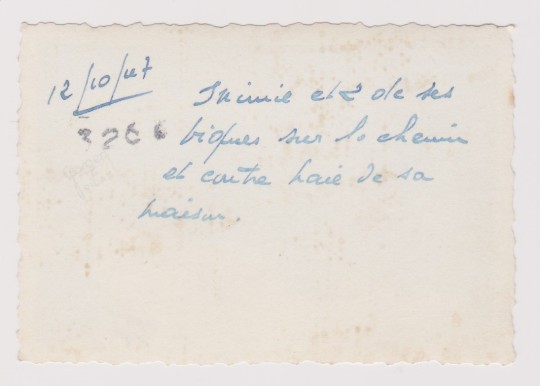 12/10/47
et 2 de ses
biques sur le chemin
et contre haie de sa
maison.